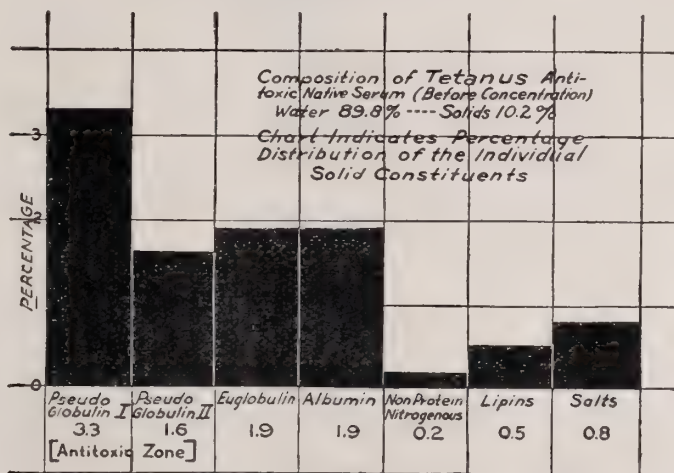 Composition of Tetanus Anti-
toxic Native Serum (Before Concentration)
Water 89.8% ---- Solids 10.2%
Chart Indicates Percentage
Distribution of the Individual
Solid Constituents
3
2
PERCENTAGE
0
Pseudo Globulin I
Pseudo Globulin II
Euglobulin
Albumin
Non Protein Nitrogenous
Lipins
Salts
3.3 1.6 1.9 1.9 0.2 0.5 0.8
[Antitoxic Zone]